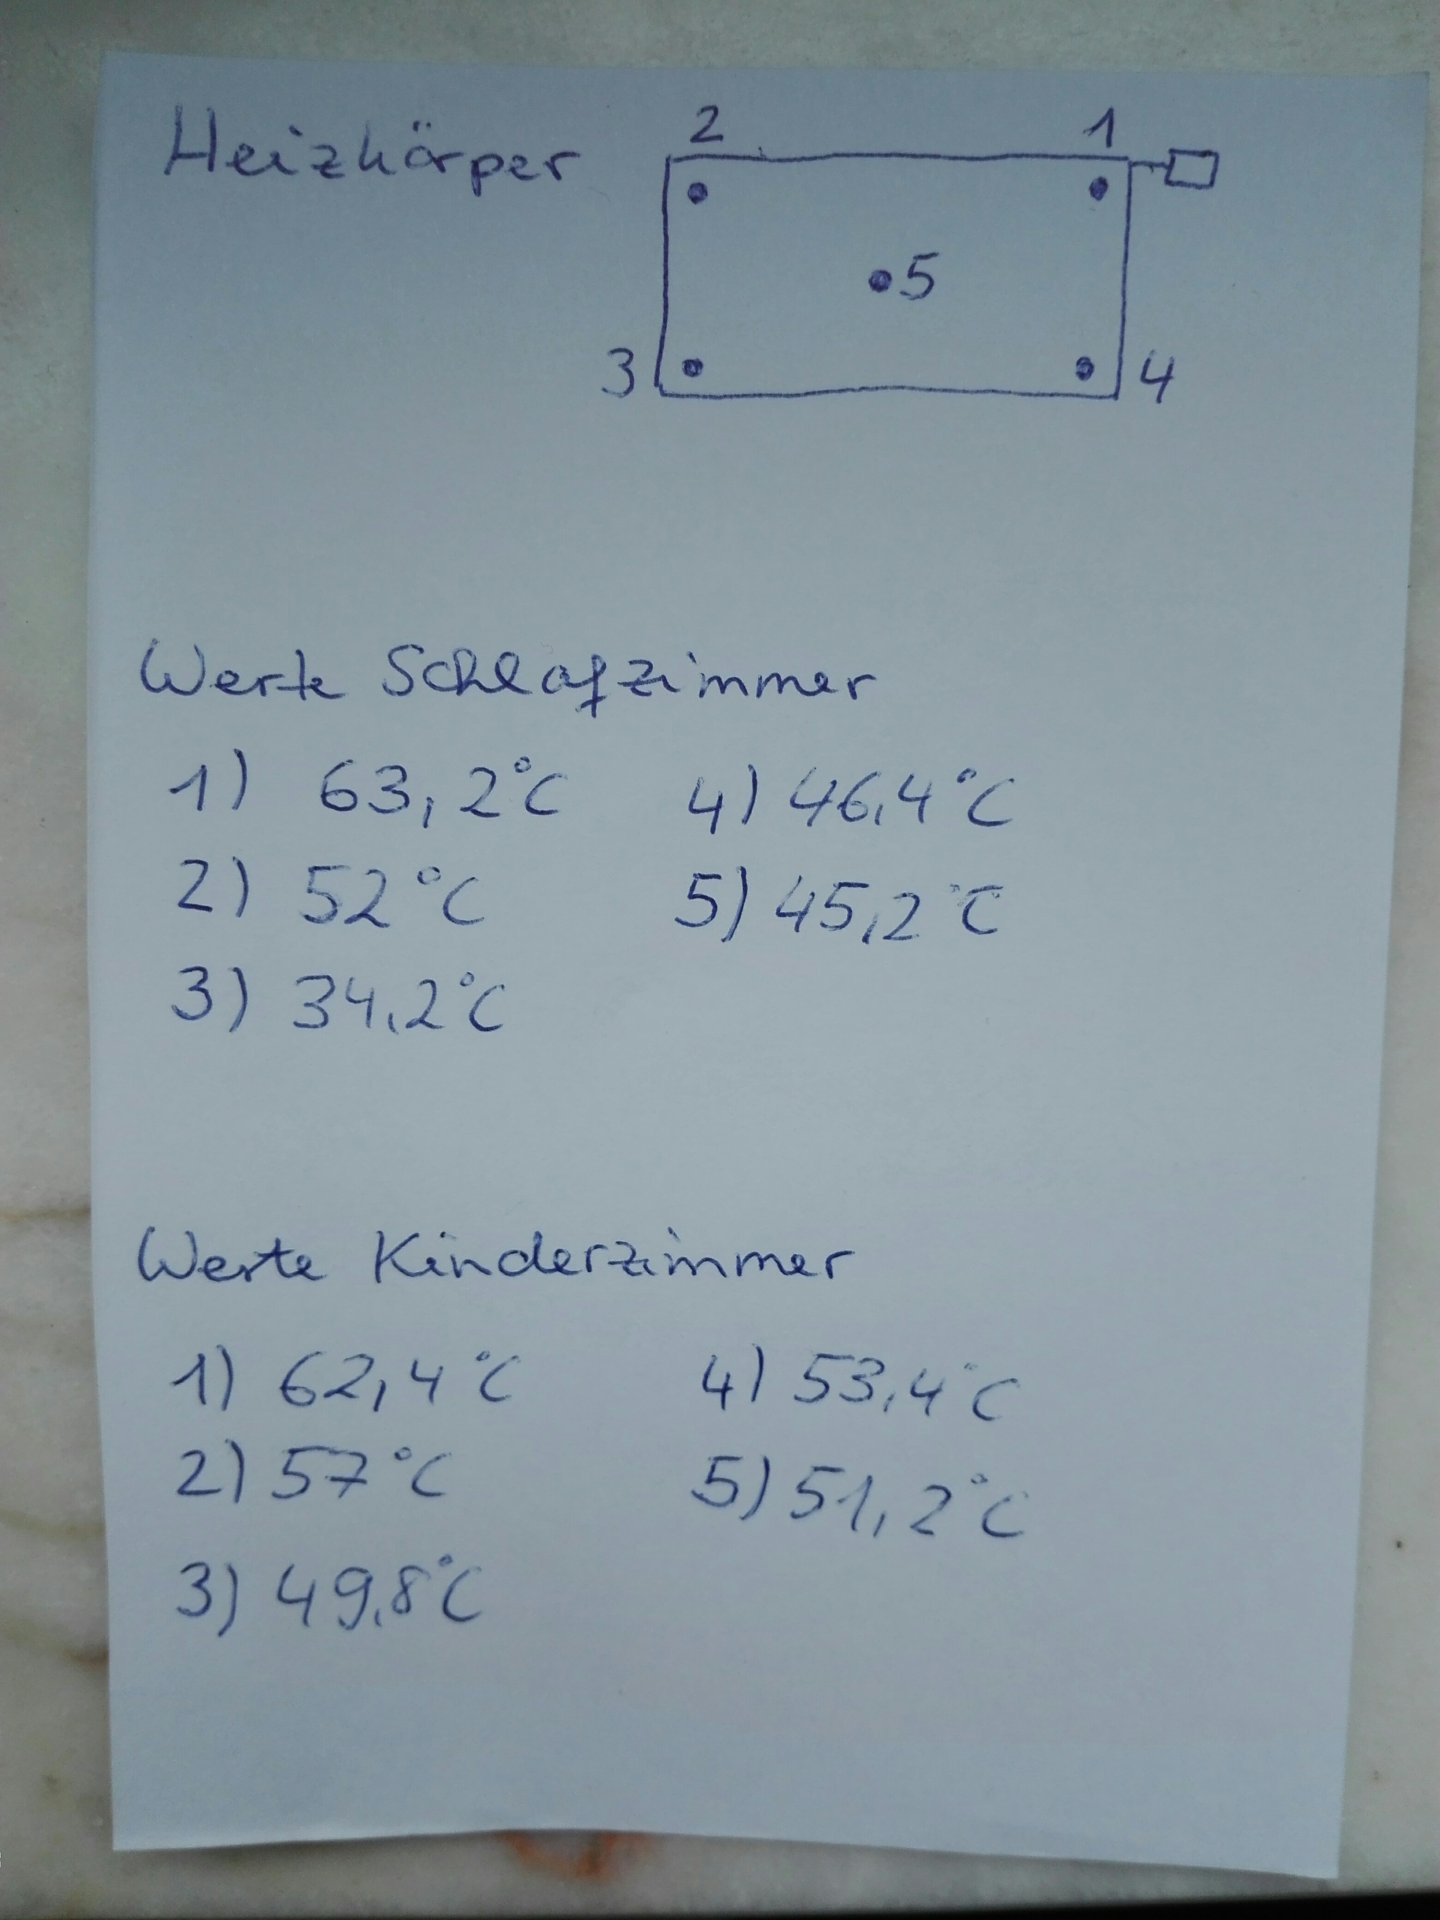 Heizkörper
2 1
5
3 4
Werte Schlafzimmer
1) 63,2°C 4) 46,4°C
2) 52°C 5) 45,2°C
3) 34,2°C
Werte Kinderzimmer
1) 62,4°C 4) 53,4°C
2) 57°C 5) 51,2°C
3) 49,8°C